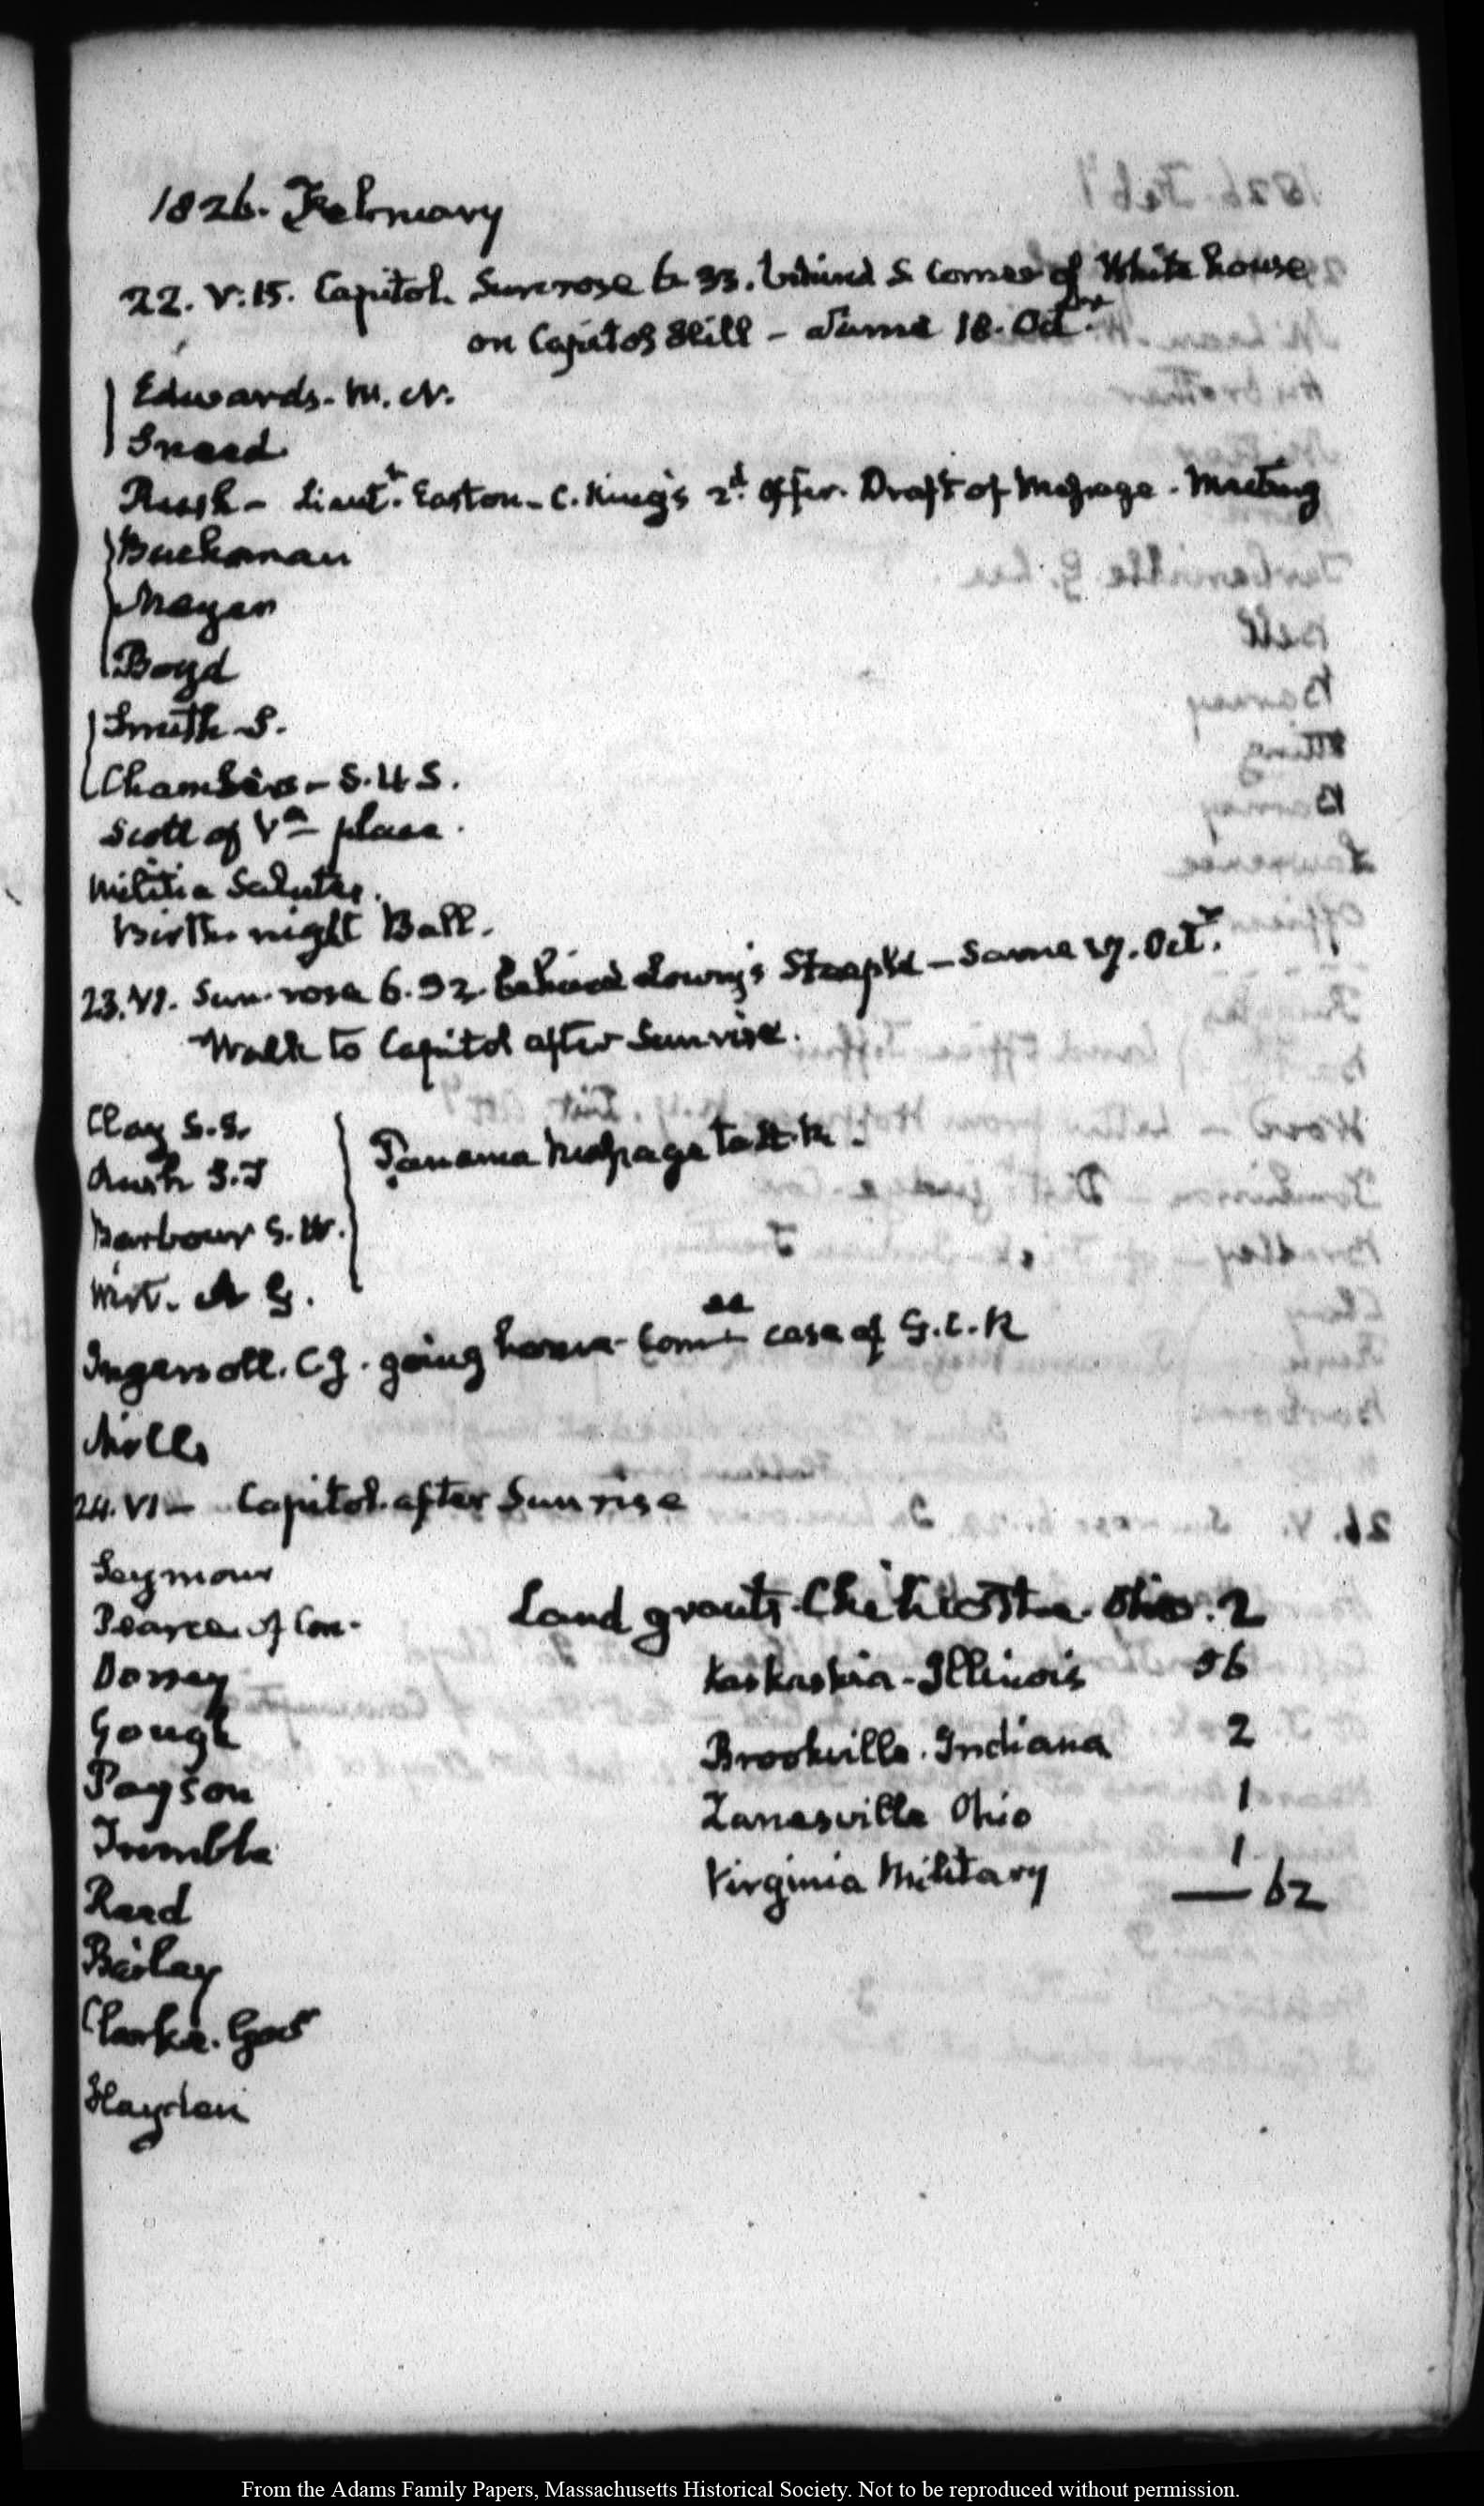 1826. February
22. V:15. Capitol. Sun rose 6.33. behind S corner of White house
on Capitol Hill - Same 18. Octbr.
Edwards. M. N.
Sneed
Rush - Lieutt. Easton - C. King's 2d. offer. Draft of Message. Meeting
Buchanan
Boyd
Smith - S.
Chambers - S.U.S.
Scott of Va place.
Militia Salutes.
Birth night Ball.
23. VI. Sun rose 6.32. behind Lowry's Steeple - Same 17. Octr.
Walk to Capitol after Sunrise.
Clay S.S.
Rush S.T
Barbour S.W.
Wirt. A G.
Panama Message talk.
Ingersoll. C J. going home - Comee case of G.C.R
Mills
24. VI - Capitol after Sun rise
Seymour
Pearce of Con.
Dorsey
Gough
Payson
Trimble
Reed
Bailey
Clarke. Gov
Hayden
Land grants. Chillicothe. Ohio. 2
Kaskaskia - Illinois 56
Brookville. Indiana 2
Zanesville Ohio 1
Virginia Military 1
— 62
From the Adams Family Papers, Massachusetts Historical Society. Not to be reproduced without permission.